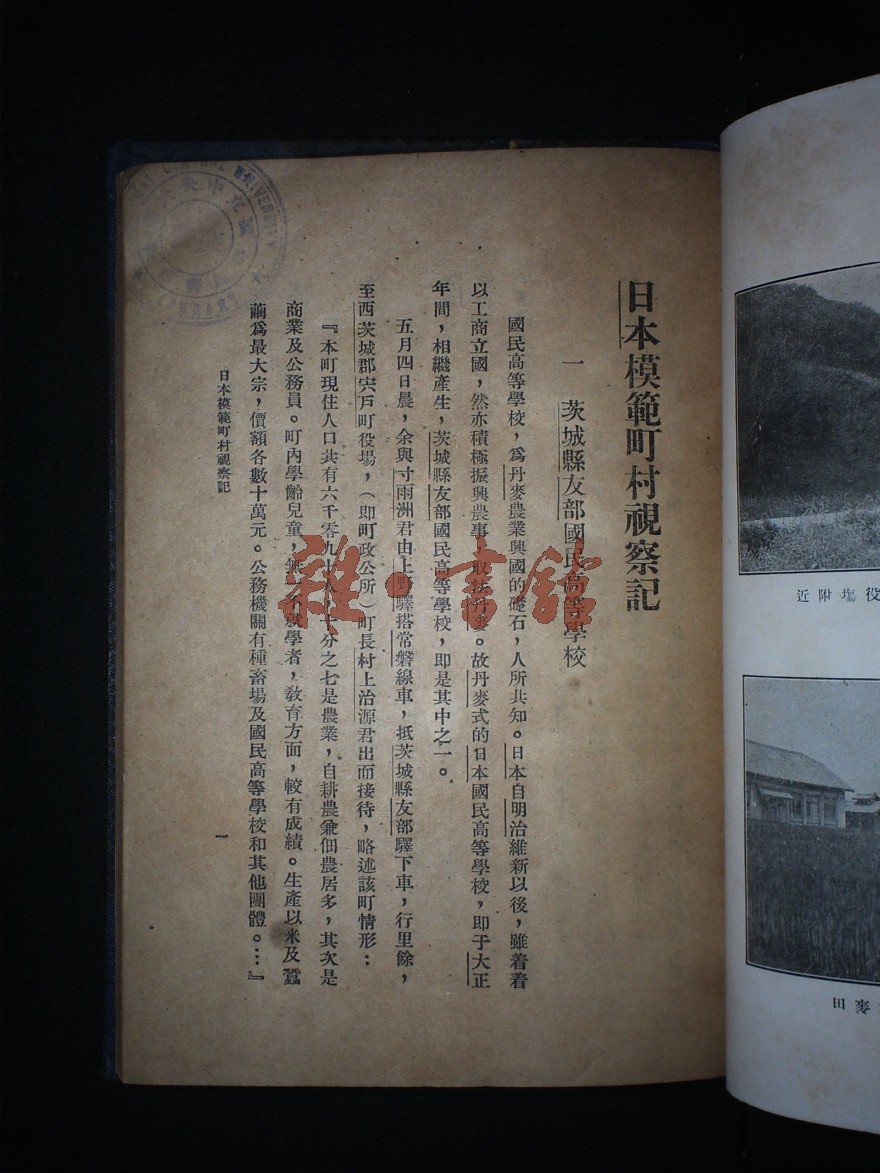 日本模範町村視察記
一　茨城縣友部國民高等學校
國民高等學校，爲丹麥農業興國的礎石，人所共知。日本自明治維新以後，雖着着
以工商立國，然亦積極振興農事，取法丹麥。故丹麥式的日本國民高等學校，即于大正
年間，相繼產生，茨城縣友部國民高等學校，即是其中之一。
五月四日晨，余與寸雨洲君由上野驛搭常磐線車，抵茨城縣友部驛下車，行里餘，
至西茨城郡宍戸町役場，（即町政公所）町長村上治源君出而接待，略述該町情形：
『本町現住人口共有六千零九十人，十分之七是農業，自耕農兼佃農居多，其次是
商業及公務員。町內學齡兒童，無不就學者，敎育方面，較有成績。生產以米及蠶
繭爲最大宗，價額各數十萬元。公務機關有種畜場及國民高等學校和其他團體。…』
日本模範町村視察記
一
雜·書館
役塲附近